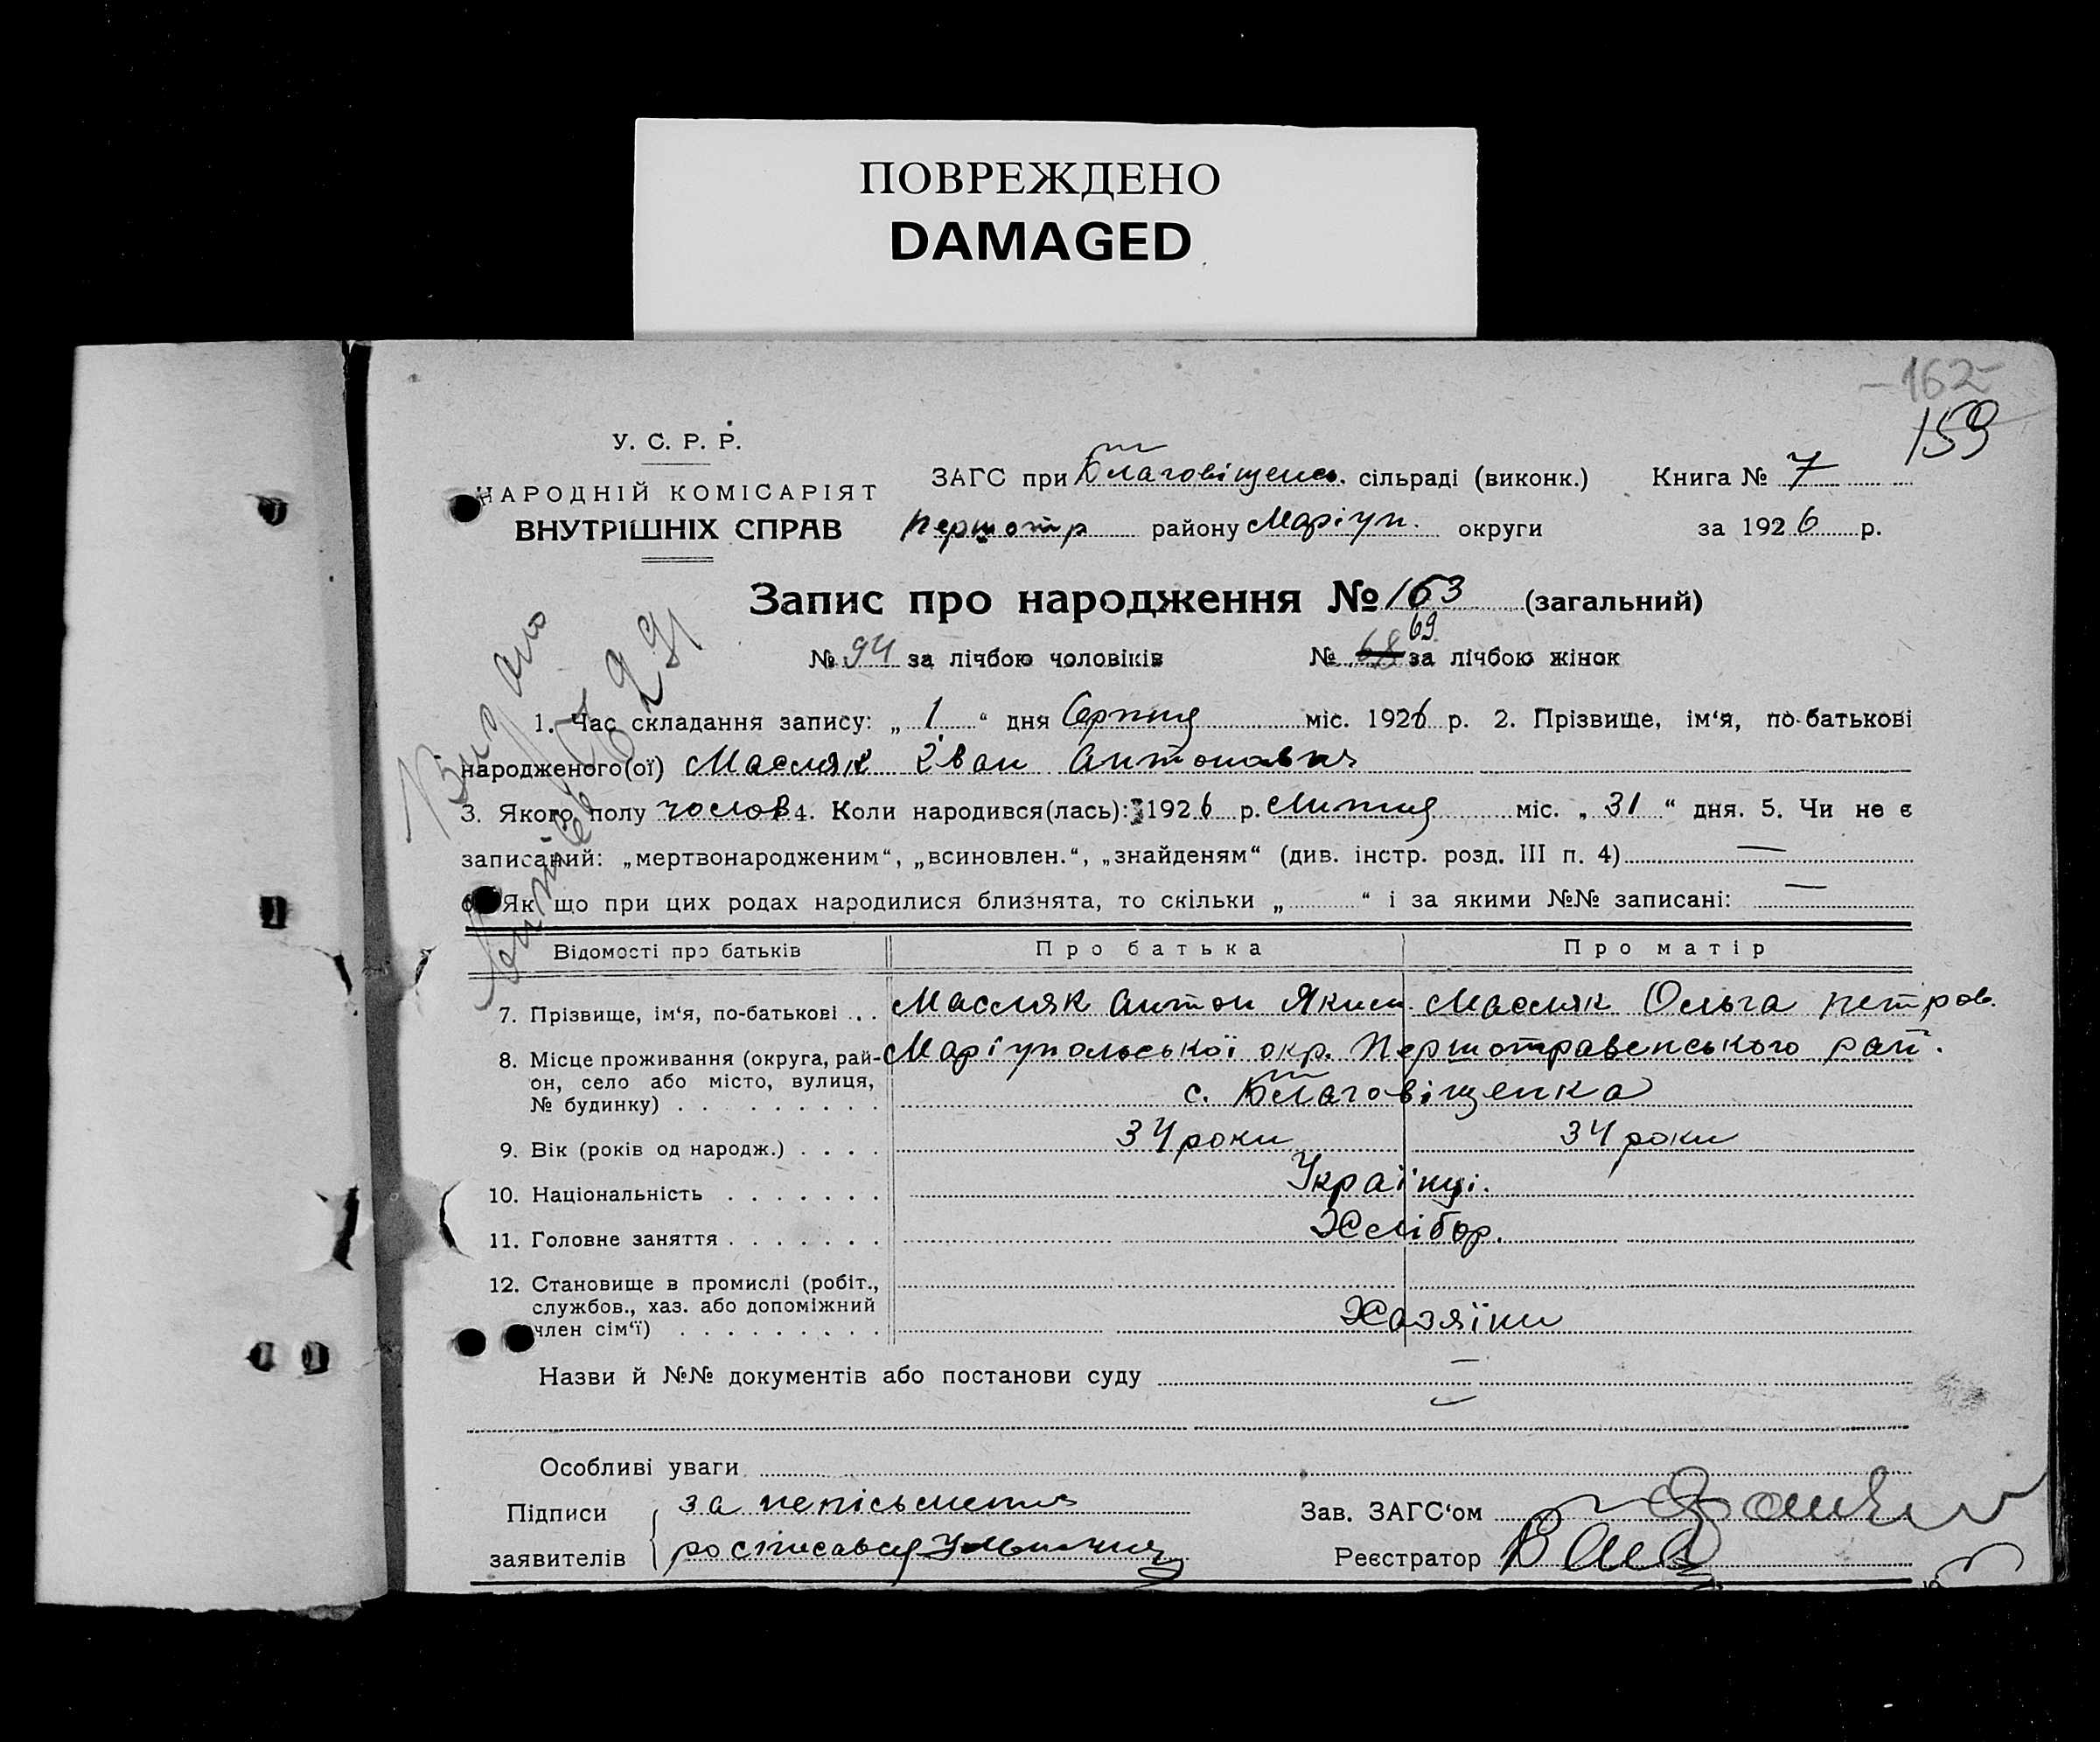 ПОВРЕЖДЕНО
DAMAGED
-162-
159
У. С. Р. Р.
НАРОДНІЙ КОМІСАРІЯТ
ВНУТРІШНІХ СПРАВ
ЗАГС при Благовіщенс. сільраді (виконк.) Книга № 7
Першотр району Маріуп. округи за 1926 р.
Запис про народження № 163 (загальний)
№ 94 за лічбою чоловіків № 68 69 за лічбою жінок
1. Час складання запису: „ 1 “ дня Серпня міс. 1926 р. 2. Прізвище, ім‘я, по-батькові
народженого(ої) Масляк Іван Антонович
3. Якого полу чолов 4. Коли народився(лась): 1926 р. Липня міс. „ 31 “ дня. 5. Чи не є
записаний: „мертвонародженим“, „всиновлен.“, „знайденям“ (див. інстр. розд. III п. 4) —
6. Як що при цих родах народилися близнята, то скільки „ “ і за якими №№ записані: —
Відомості про батьків Про батька Про матір
7. Прізвище, ім‘я, по-батькові . . Масляк Антон Яким. Масляк Ольга Петров.
8. Місце проживання (округа, рай- Маріупольської окр. Першотравенського рай.
он, село або місто, вулиця,
№ будинку) . . . . . . . . . с. Благовіщенка
9. Вік (років од народж.) . . . . 34 роки 34 роки
10. Національність . . . . . . . Українці.
11. Головне заняття . . . . . . . Хлібор.
12. Становище в промислі (робіт.,
службов., хаз. або допоміжний
член сім‘ї) . . . . . . . . . Хазяїни
Назви й №№ документів або постанови суду —
Особливі уваги
Підписи за непісьмення Зав. ЗАГС‘ом
заявителів росписався Реєстратор